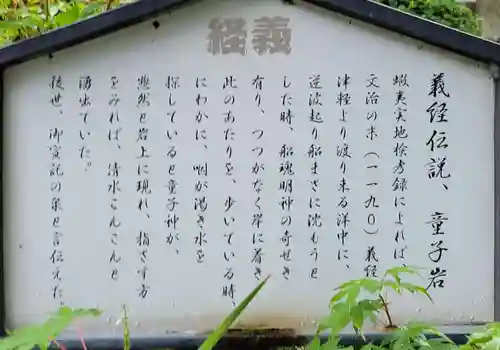 義経
義経伝説、童子岩
蝦夷実地検考録によれば、
文治の末(一一九〇)義経
津軽より渡り来る洋中に、
逆波起り船まさに沈もうと
した時、船魂明神の奇せき
有り、つつがなく岸に着き
此のあたりを、歩いている時
にわかに、咽が渇き水を
探していると童子神が、
忽然と岩上に現れ、指さす方
をみれば、清水こんこんと
湧出ていた。
後世、御宝記の泉と言伝えた。